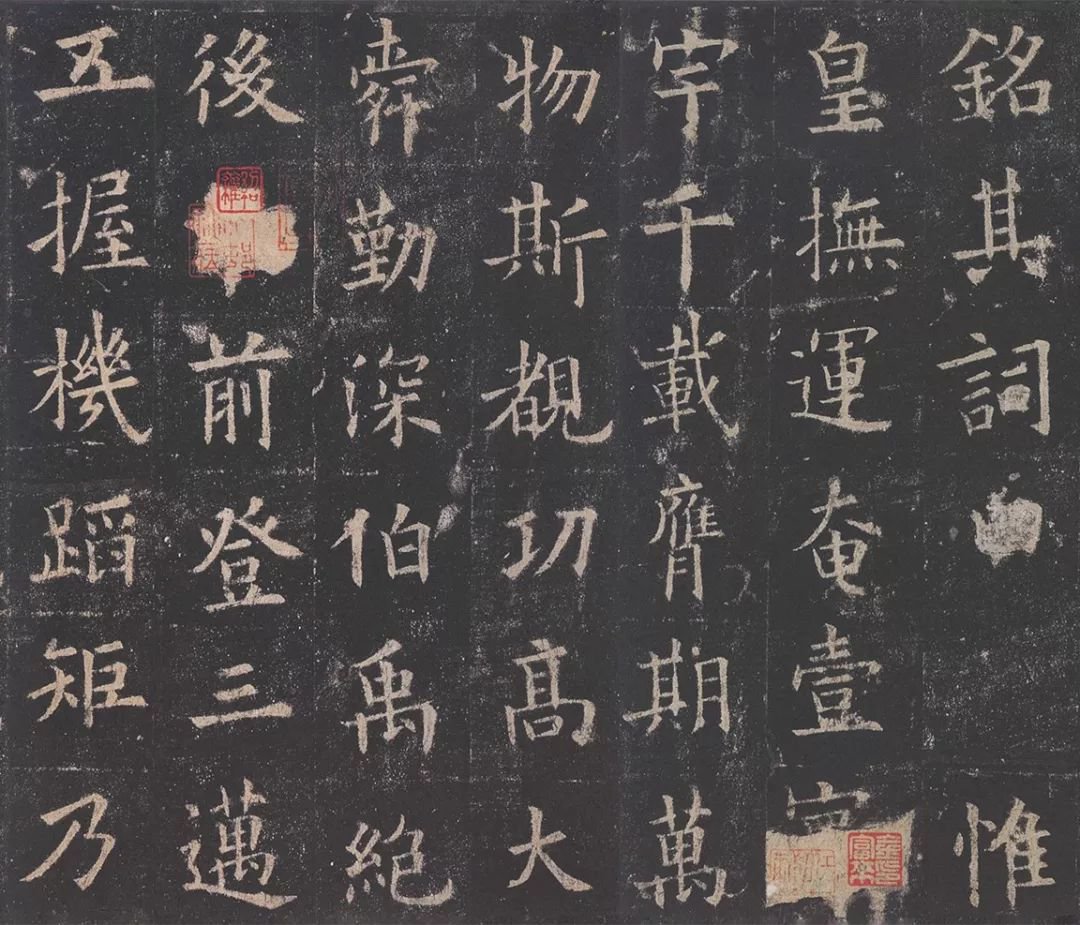 銘其詞惟
皇撫運奄壹
宇千載膺期萬
物斯覩功髙大
舜勤深伯禹絕
後前登三邁
五握機蹈矩乃